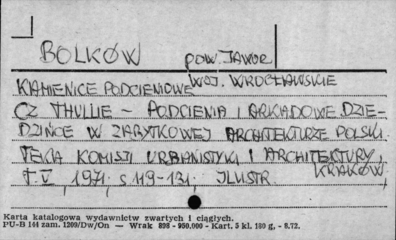 BOLKÓW pow. JAWOR
WOJ. WROCŁAWSKIE
KAMIENICE PODCIENIOWE
CZ. THULLIE – PODCIENIA I ARKADOWE DZIE-
DZIŃCE W ZABYTKOWEJ ARCHITEKTURZE POLSKI
TEKA KOMISJI URBANISTYKI I ARCHITEKTURY,
T. V, 1971, s 119-131, ILUSTR. KRAKÓW,
Karta katalogowa wydawnictw zwartych i ciągłych.
PU-B 144 zam. 1209/Dw/On — Wrak 898 - 950.000 - Kart. 5 kl. 180 g. - 8.72.